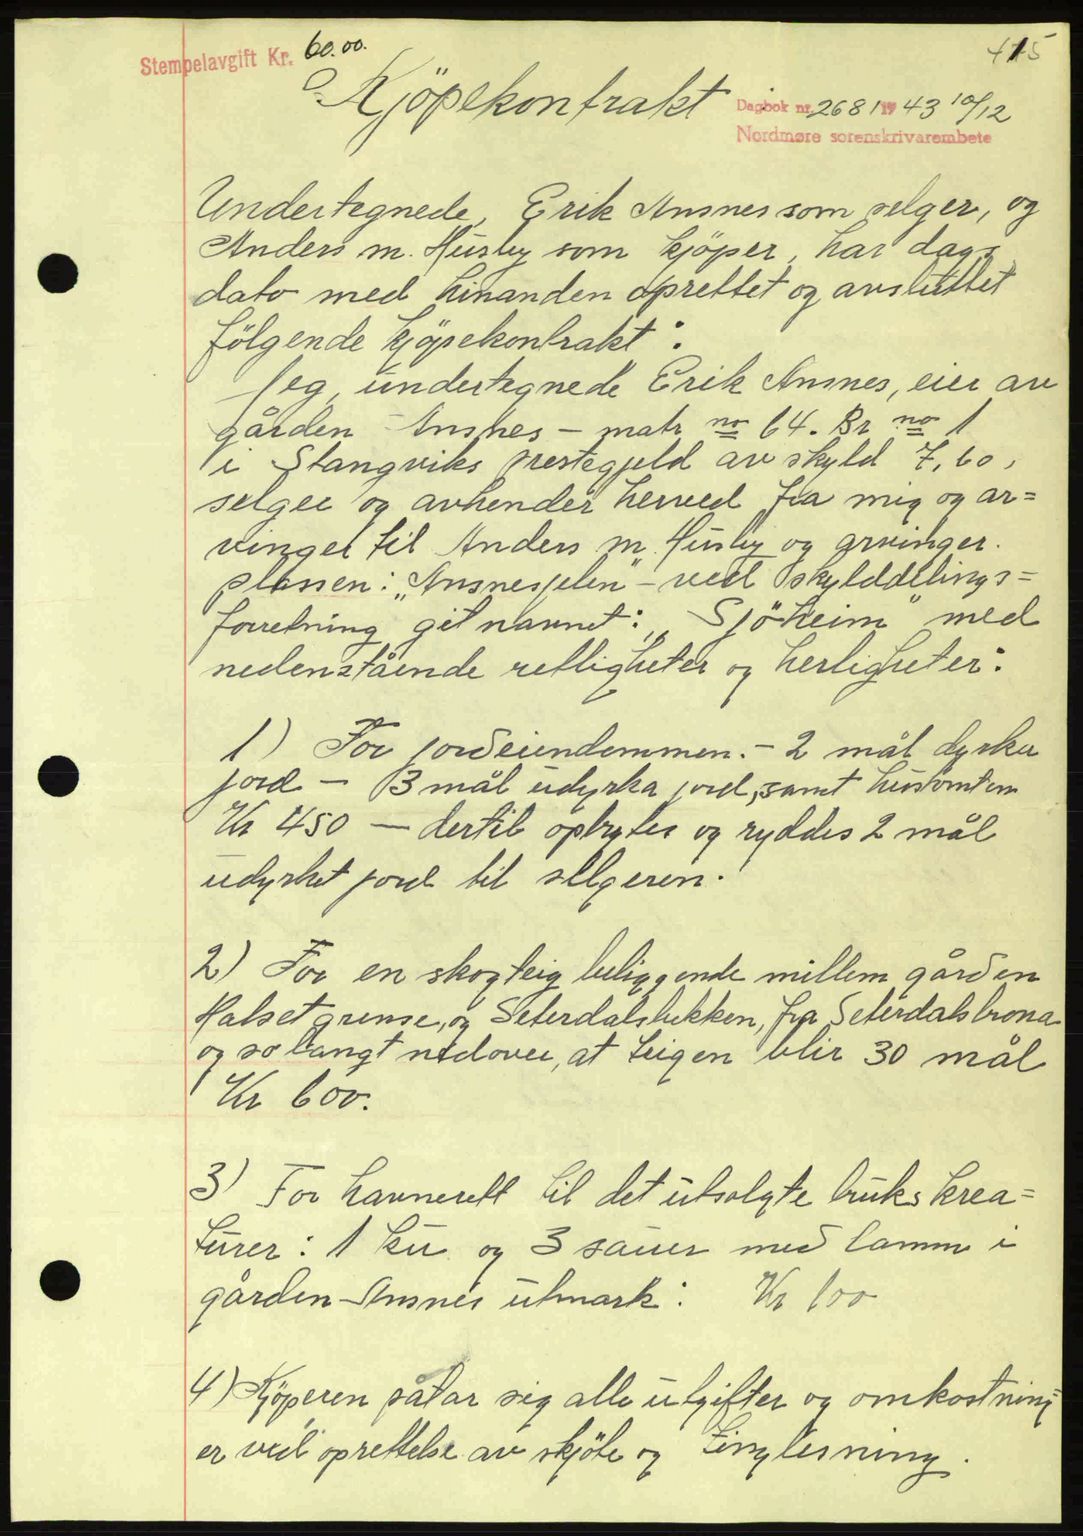 Stempelavgift Kr. 60.00.
415
Kjöpekontrakt
Dagbok nr. 2681 1943 10/12
Nordmøre sorenskrivarembete
Undertegnede, Erik Ansnes som selger, og
Anders M. Husby som kjöper, har dags
dato med hinanden oprettet og avsluttet
fölgende kjöpekontrakt:
Jeg, undertegnede Erik Ansnes, eier av
gården Ansnes - matr no 64. Br no 1
i Stangviks prestegjeld av skyld 7,60,
selger og avhender herved fra mig og ar=
vinger til Anders M. Husby og arvinger.
plassen: "Ansnesjelen" - ved skylddelings=
forretning git navnet: "Sjöheim" med
nedenstående rettigheter og herligheter:
1) For jordeiendommen. - 2 mål dyrka
jord - 3 mål udyrka jord, samt hustomten
Kr 450 - dertil opbrytes og ryddes 2 mål
udyrket jord til selgeren.
2) For en skogteig beliggende millem gården
Halset grense, og Seterdalsbekken, fra Seterdalsbrona
og so langt nedover, at teigen blir 30 mål
Kr 600.
3) For havnerett til det utsolgte bruks krea=
turer: 1 ku og 3 sauer med lamm i
gården Ansnes utmark: Kr 100
4) Kjöperen påtar sig alle utgifter og omkostning=
er ved oprettelse av skjöte og tinglesning.